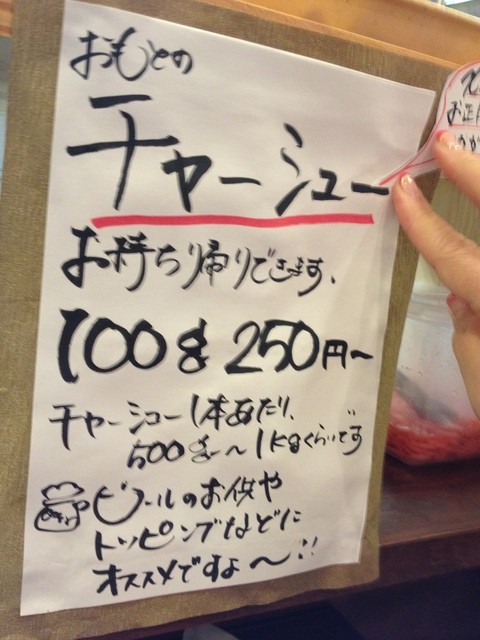 おもとの
チャーシュー
お持ち帰りできます、
100g 250円〜
チャーシュー1本あたり、
500g〜1kgくらいです
ビールのお供や
トッピングなどに
オススメですよ〜!!
お正月